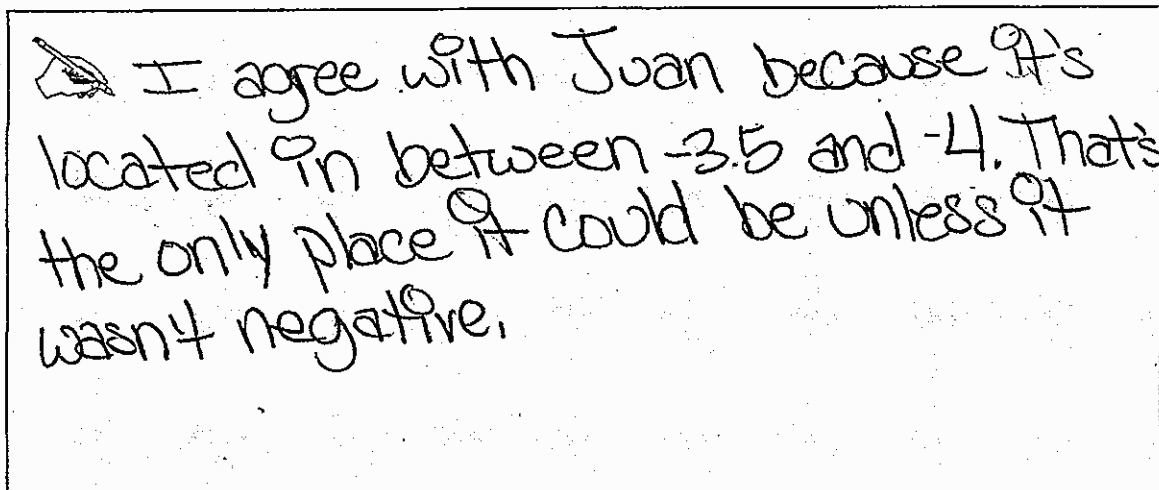 I agree with Juan because it's
located in between -3.5 and -4. That's
the only place it could be unless it
wasn't negative.